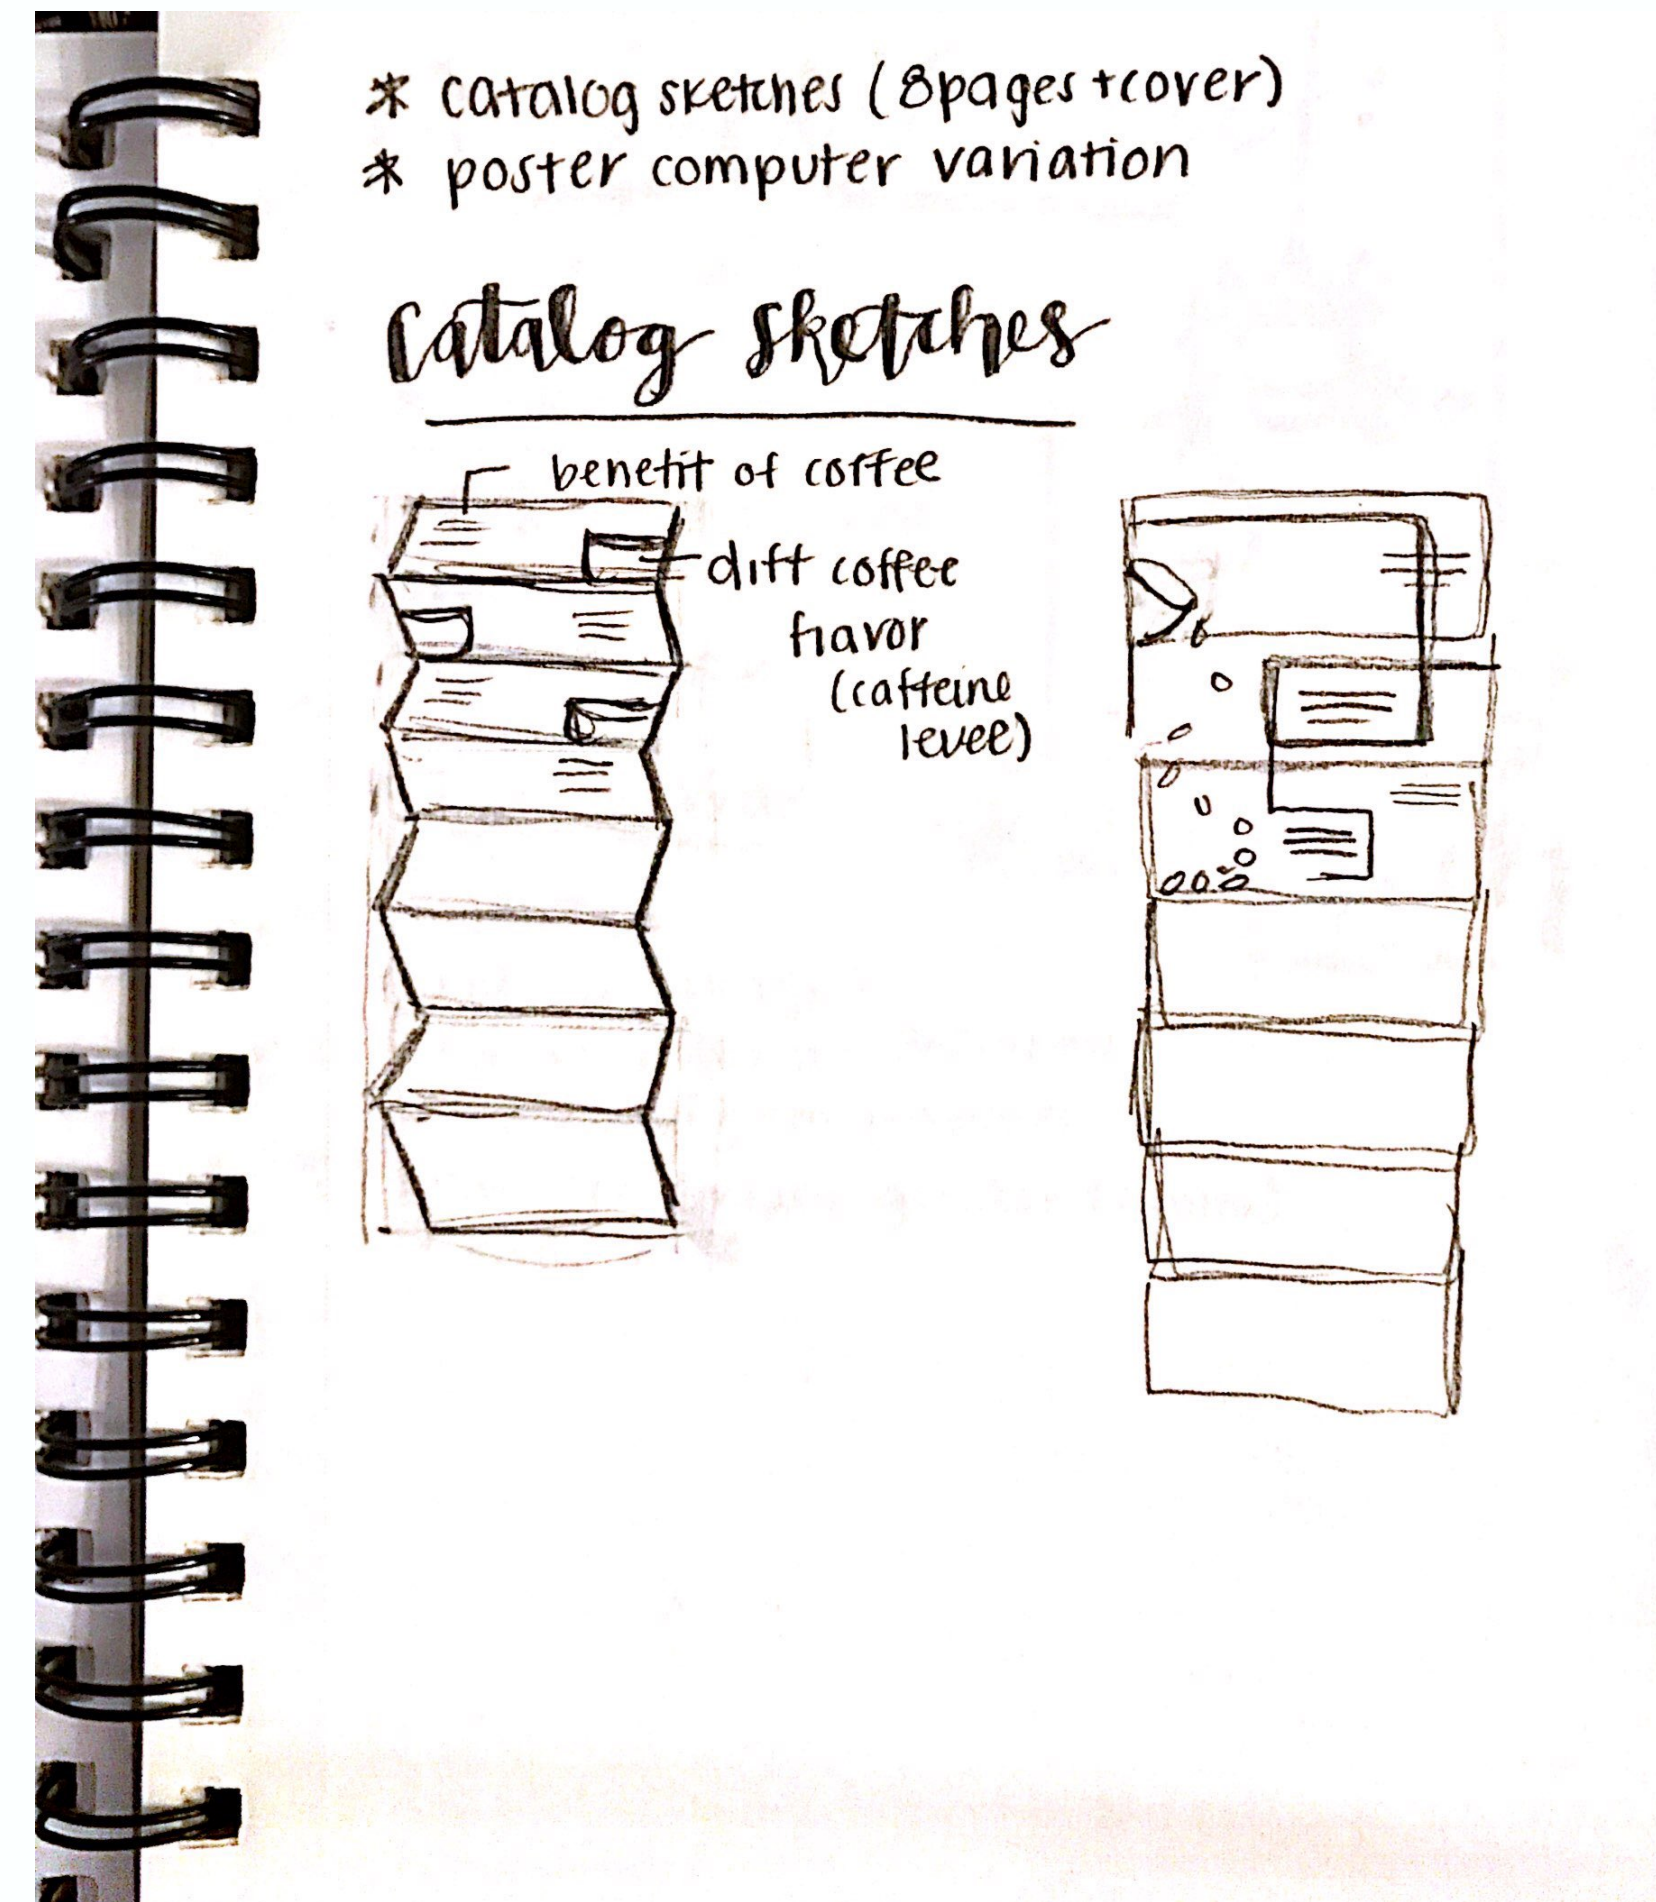 * catalog sketches (8pages + cover)
* poster computer variation
catalog sketches
benefit of coffee
diff coffee
flavor
(caffeine
level)